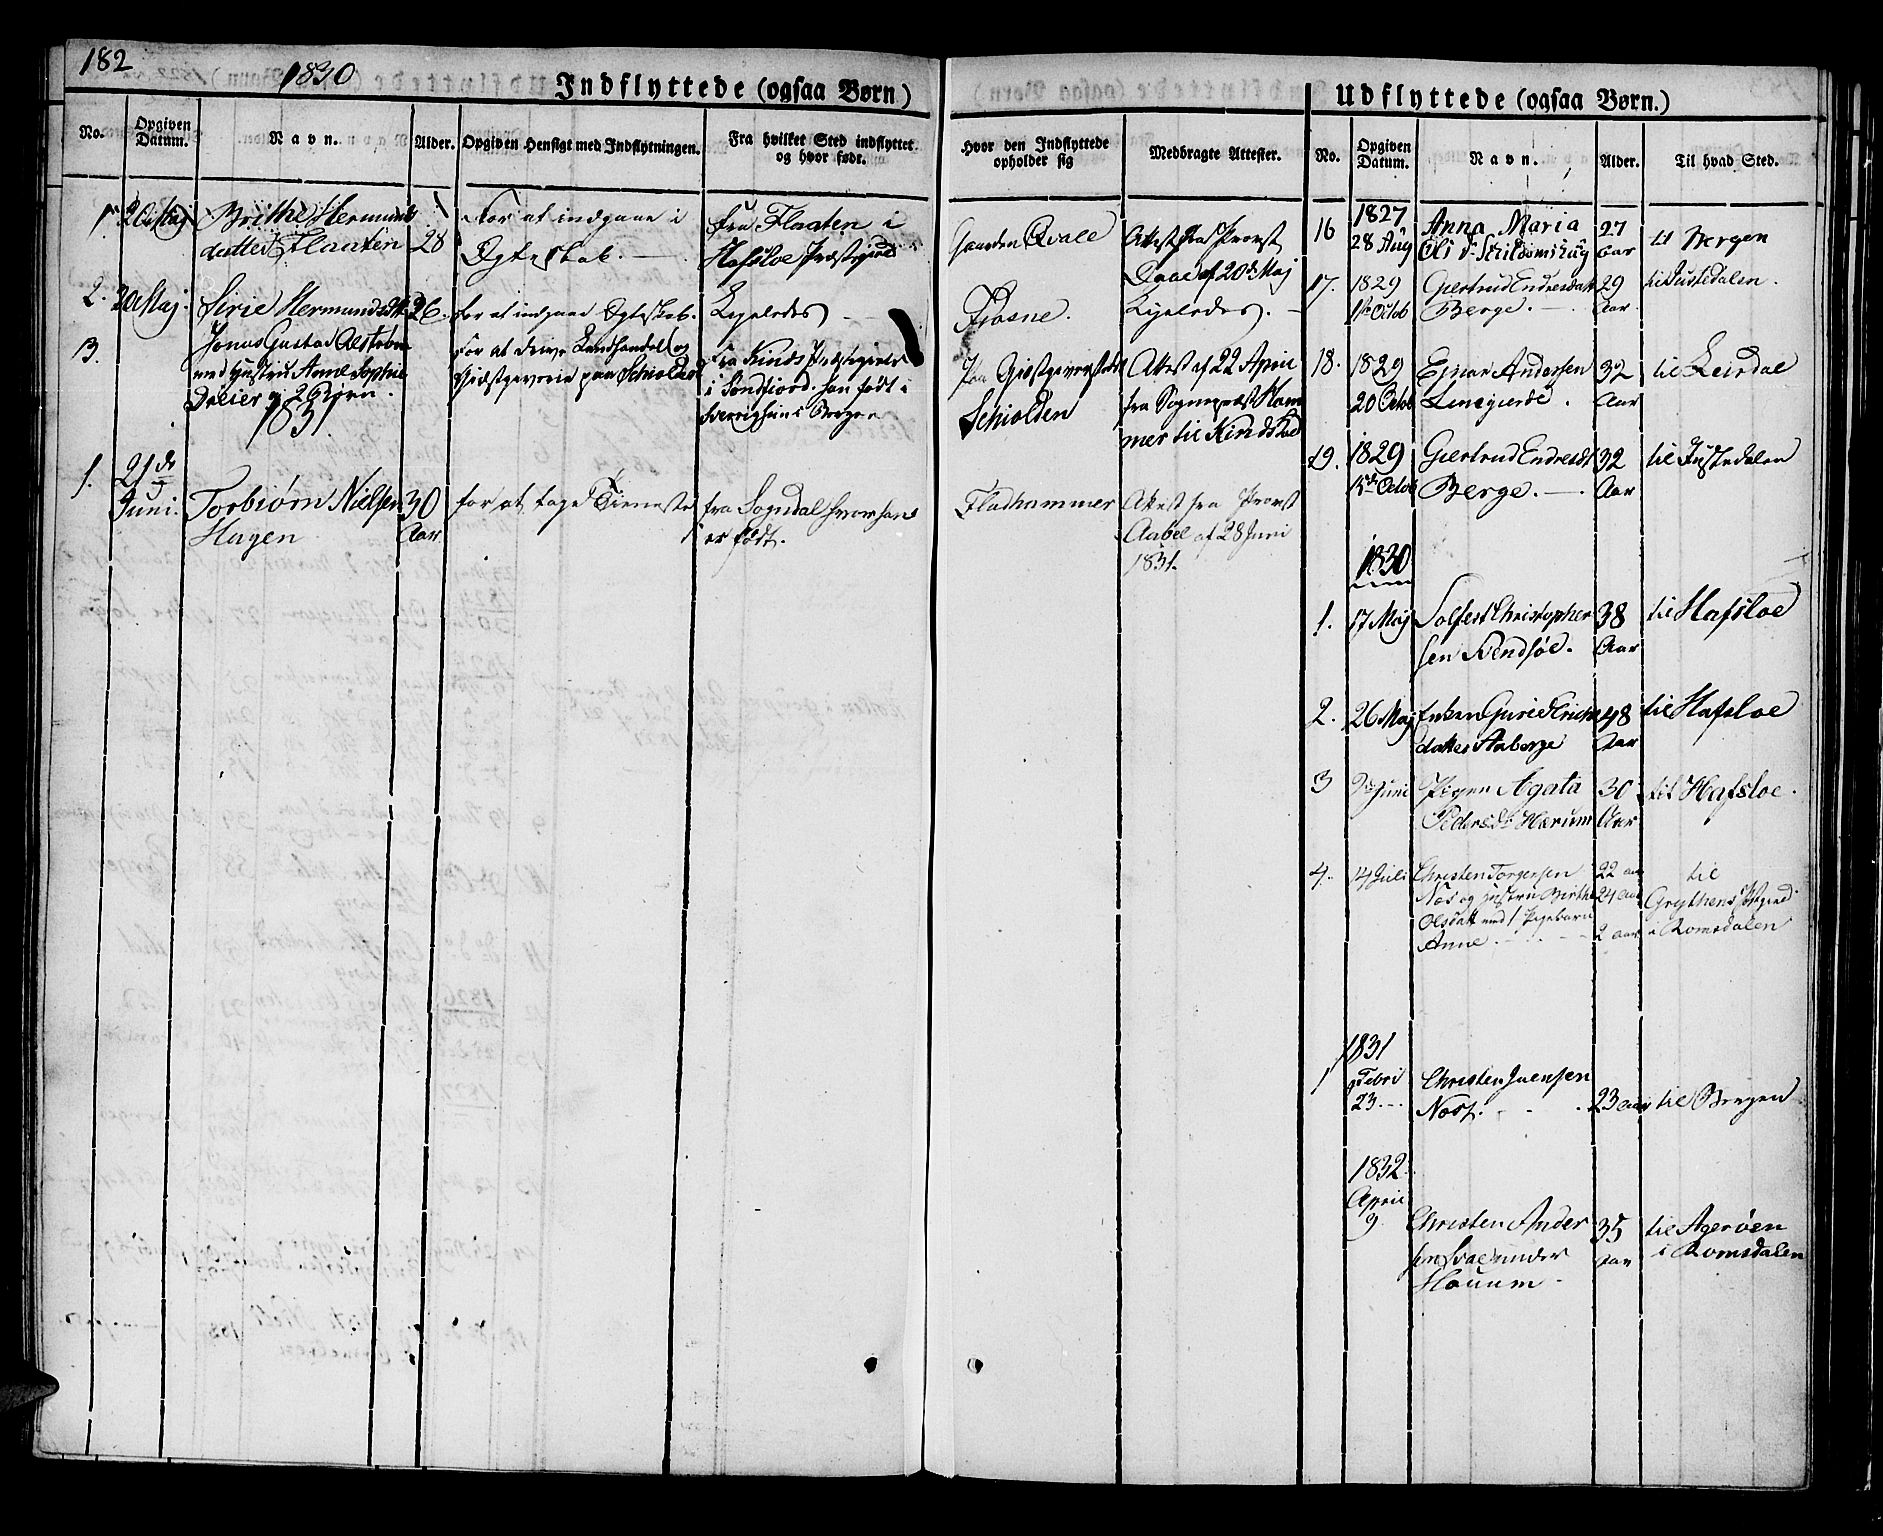 182
1830
Indflyttede (ogsaa Børn)
No.
Opgiven Datum.
Navn.
Alder.
Opgiven Hensigt med Indflytningen.
Fra hvilket Sted indflyttet og hvor født.
Hvor den Indflyttede opholder sig
Medbragte Attester.
1 20 Maj Brithe Hermunds
datter Flaaten 28
For at indgaae i
Ægteskab.
fra Flaaten i
Hafsloe Præstegield
Gaarden Qvale
Attest fra Provst
Daae af 20de Maj
2. 20 Maj. Sirie Hermundsdtr 26.
for at indgaae Ægteskab.
Ligeledes
Fiøsne.
Ligeledes.
3.
Jonas Gustad
med Hustru Anne Sophie
Dreier og 2 Børn.
For at drive Landhandel og
Giæstgeverie paa Schiolden
Fra Kinds Præstegield
i Søndfiord. han født i
hun i Bergen
Paa Giestgeverstedet
Schiolden
Attest af 22 April
fra Sognepræst Ham
mer til Kinds Kald
1831
1. 21de
Juni.
Torbiørn Nielsen
Hagen
30
Aar
for at tage Tieneste
fra Sogndal hvor han
er født.
Fladhammer
Attest fra Provst
Aabel af 28 Juni
1831.
Udflyttede (ogsaa Børn.)
No.
Opgiven Datum.
Navn.
Alder.
Til hvad Sted.
16 1827
28 Aug
Anna Maria
Ols d.
27
aar
til Bergen
17. 1829
1ste Octob
Giertrud Endresdatt
Berge.
29
Aar.
til Justedalen.
18. 1829
20 Octob
Ejnar Andersen
Linegierde.
32
Aar
til Leirdal
19. 1829
15de Octob
Giertrud Endresdt
Berge.
32
Aar
til Justedalen
1830
1. 17 Maj
Solfest Christopher
sen Kendsøe.
38
Aar
til Hafsloe
2. 26 Maj
Enken Guri
datter Aaberge
48
Aar
til Hafsloe
3 2 Juni
Pigen Agata
Pedersd. Hærum
30
Aar
til Hafsloe.
4. 14 Juli
Christen Torgersen
Næs og Hustru Birthe
Olsdatt med 1 Pigebarn
Anne
22 aar
24 aar
2 aar
til
Grythens Pstgield
i Romsdalen
1831
1 Febri
23.
Christen Iuensen
Næss.
23 aar
til Bergen
1832
April
9.
Christen Ander
sen under
Houum
35
aar
til Agerøen
i Romsdalen